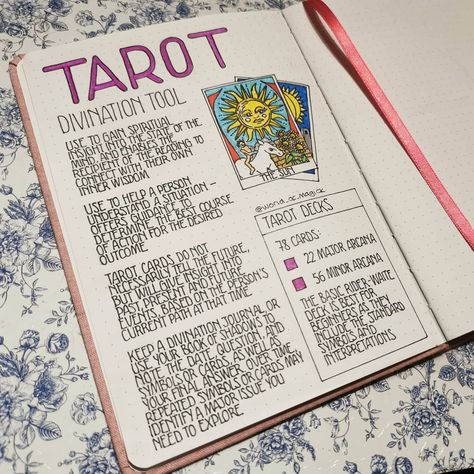 TAROT
DIVINATION TOOL
USE TO GAIN SPIRITUAL
INSIGHT INTO THE STATE OF THE
MIND, AND ENABLES THE
RECIPIENT OF THE READING TO
CONNECT WITH THEIR OWN
INNER WISDOM
USE TO HELP A PERSON
UNDERSTAND A SITUATION -
OFFERS GUIDANCE TO
DETERMINE THE BEST COURSE
OF ACTION FOR THE DESIRED
OUTCOME
TAROT CARDS DO NOT
NECESSARILY TELL THE FUTURE,
BUT WILL GIVE INSIGHT INTO
PAST, PRESENT AND FUTURE
EVENTS BASED ON THE PERSON'S
CURRENT PATH AT THAT TIME.
KEEP A DIVINATION JOURNAL OR
USE YOUR BOOK OF SHADOWS TO
NOTE THE DATE, QUESTION AND
SYMBOLS OR CARDS, AS WELL AS
YOUR FINAL ANSWER. OVER TIME
REPEATED SYMBOLS OR CARDS MAY
IDENTIFY A MAJOR ISSUE YOU
NEED TO EXPLORE
THE SUN
@world_of_magick
TAROT DECKS
78 CARDS:
22 MAJOR ARCANA
56 MINOR ARCANA
THE BASIC RIDER-WAITE
DECK IS BEST FOR
BEGINNERS AS THEY
INCLUDE THE STANDARD
SYMBOLS AND
INTERPRETATIONS